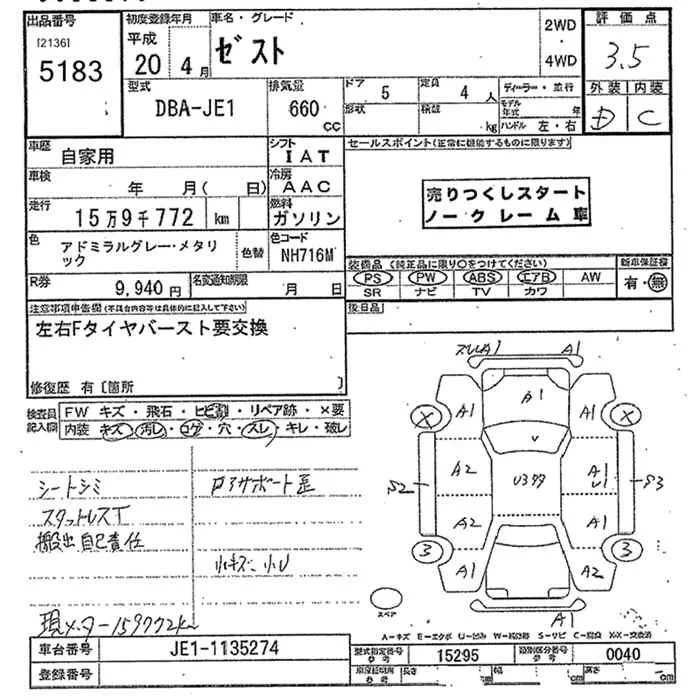 出品番号
[2136]
5183
初度登録年月
平成
20 4月
車名・グレード
ゼスト
2WD
・
4WD
評価点
3.5
外装 内装
D C
型式
DBA-JE1
排気量
660 cc
ドア 5
定員 4 人
形状 積載 kg
ディーラー・並行
モデル年式 年
ハンドル 左・右
車歴 自家用
シフト IAT
セールスポイント(正常に機能するものに限ります)
車検 年 月( 日)
冷房 AAC
売りつくしスタート
ノークレーム車
走行 15万9千772 km
燃料 ガソリン
色 アドミラルグレー・メタリック
色替
色コード NH716M
装備品(純正品に限り○をつけてください)
新車保証書
PS PW ABS エアB AW
有・無
SR ナビ TV カワ
R券 9,940円
名変通知期限 月 日
後日品
注意事項申告欄(不具合内容等は具体的に記入して下さい)
左右Fタイヤバースト要交換
修復歴 有〔箇所 〕
検査員記入欄
FW キズ・飛石・ヒビ割・リペア跡・×要
内装 キズ・汚レ・コゲ・穴・スレ・キレ・破レ
シートシミ
スタットレスT
搬出自己責任
小キズ・小U
現メーター159772km
スレA1 A1
A1 A1 A1
X X
A2 A1
U1
S2 U3タタ S3
A2 A1
3 3
A1 A2
A1
スペア
A-キズ E-エクボ U-凹み W-補修跡 S-サビ C-腐食 X・XX-交換済
車台番号 JE1-1135274
型式指定番号 参考 15295
類別区分番号 参考 0040
登録番号
参考 長さ cm 幅 cm 高さ cm